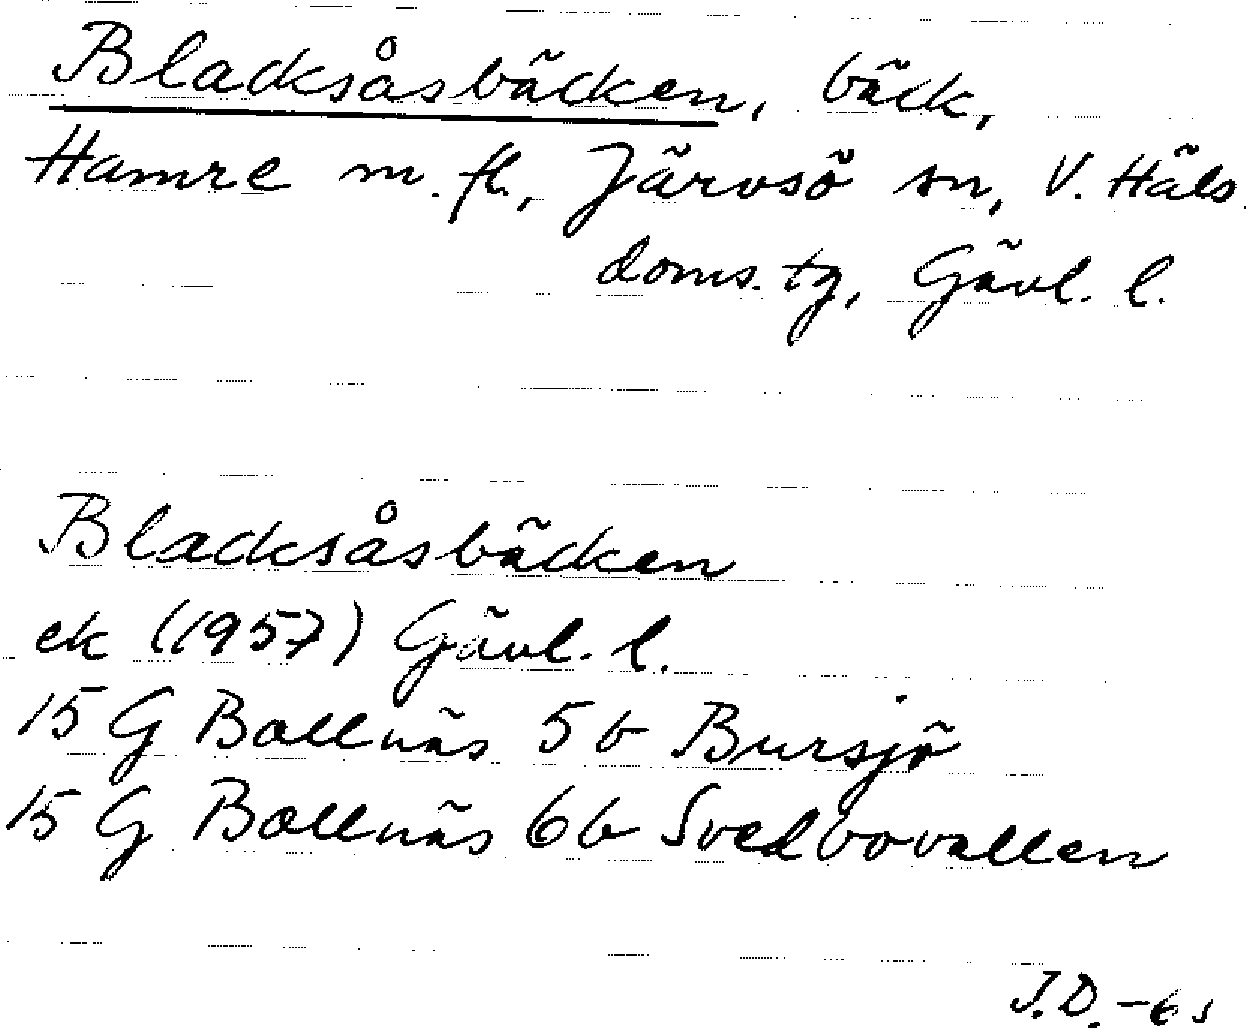 Blacksåsbäcken, bäck,
Hamre m. fl., Järvsö sn, V. Häls.
doms. tg, Gävl. l.
Blacksåsbäcken
ek (1957) Gävl. l.
15 G Bollnäs 5 b Bursjö
15 G Bollnäs 6 b Svedbovallen
J.D.